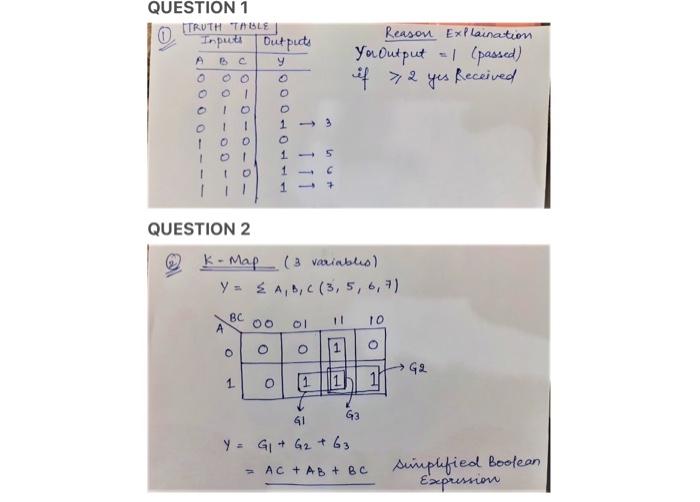 QUESTION 1
① TRUTH TABLE
Inputs Outputs
A B C Y
0 0 0 0
0 0 1 0
0 1 0 0
0 1 1 1 → 3
1 0 0 0
1 0 1 1 → 5
1 1 0 1 → 6
1 1 1 1 → 7
Reason Explaination
Y or Output = 1 (passed)
if ⩾ 2 yes Received
QUESTION 2
② K-Map (3 variables)
Y = Σ A, B, C (3, 5, 6, 7)
BC
A
00 01 11 10
0 0 0 1 0
1 0 1 1 1 → G2
G1 G3
Y = G1 + G2 + G3
= AC + AB + BC Simplified Boolean
Expression